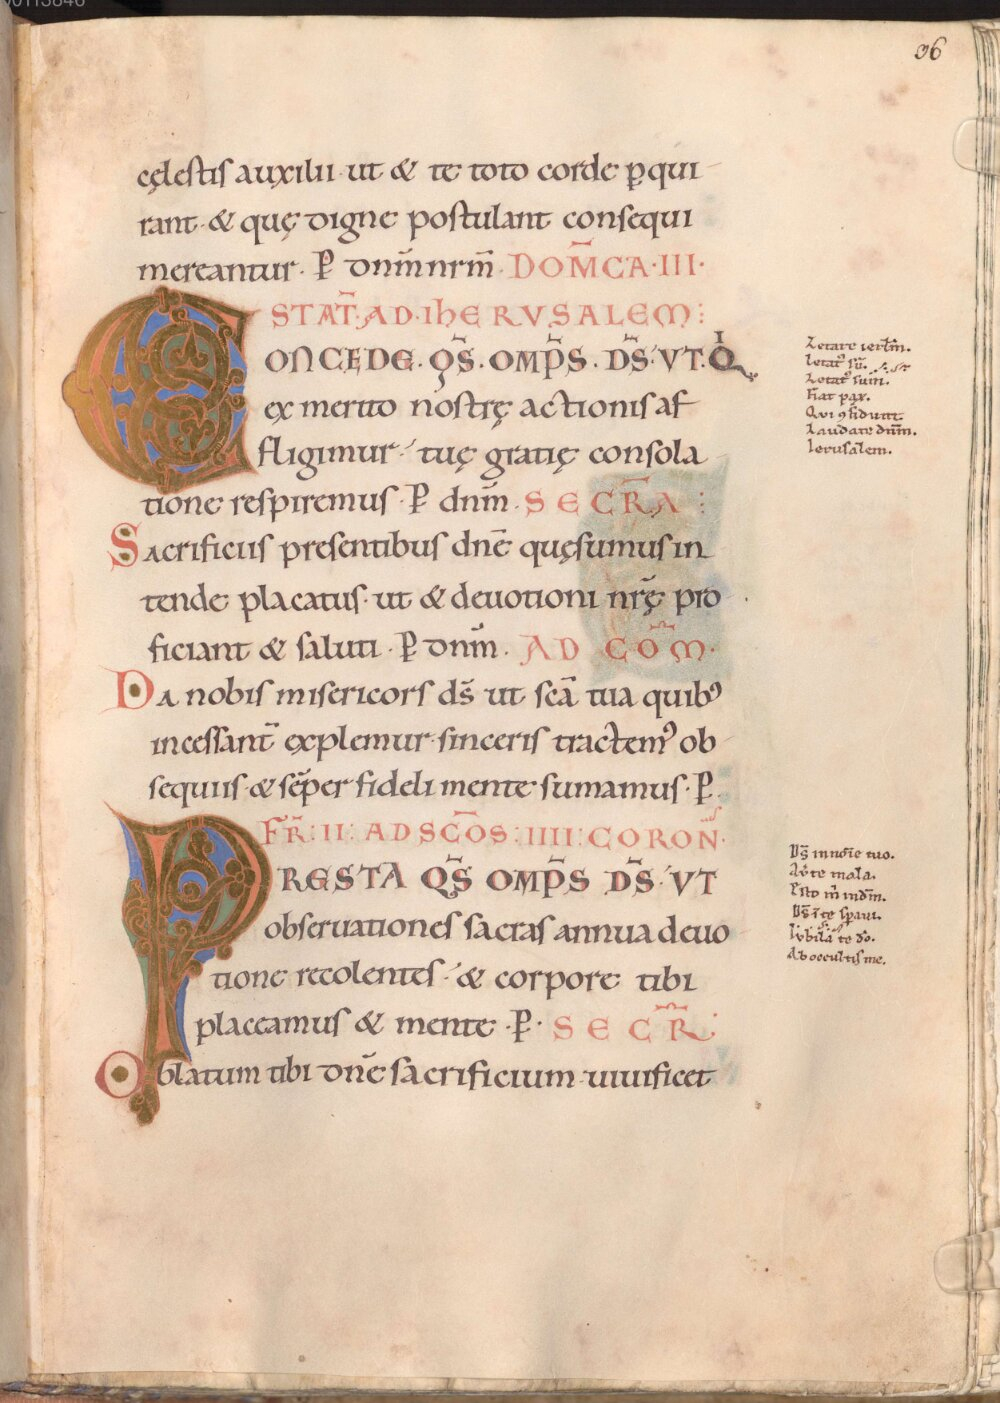 96
cęlestis auxilii ut & te toto corde ꝑqui
rant · & quę digne postulant consequi
mereantur · P dnm̄ nrm̄ · DOM̄CA · III ·
STAT̄ · AD · IhERVSALEM :
CONCEDE · QS̄ · OMP̄S · DS̄ · VT · Qͥ
ex merito nostrę actionis af
fligimur · tuę gratię consola
tione respiremus · P dnm̄ · SECR̄A :
Sacrificiis presentibus dnē quęsumus in
tende placatus · ut & deuotioni nrę̄ pro
ficiant & saluti · P dnm̄ · AD COM̄ ·
Da nobis misericors ds̄ ut scā tua quibꝰ
incessant̄ explemur · sinceris tractemꝰ ob
sequiis & sēper fideli mente sumamus · P
FR̄ : II : AD SC̄OS : IIII : CORON̄ ·
PRESTA QS̄ OMP̄S DS̄ · VT
obseruationes sacras annua deuo
tione recolentes · & corpore tibi
placeamus & mente · P · SECR̄ :
Oblatum tibi dnē sacrificium uiuificet
Letare ierl̄m.
Letatꝰ sū.
Letatꝰ sum̄.
Fiat pax.
Qui ꝯfidunt
Laudate dnm̄.
Ierusalem.
Ds̄ in noīe tuo.
Aūte mala.
Esto m̄ in dm̄.
Ds̄ ī te sꝑaui.
Iubilā te dō.
Ab occultis me.